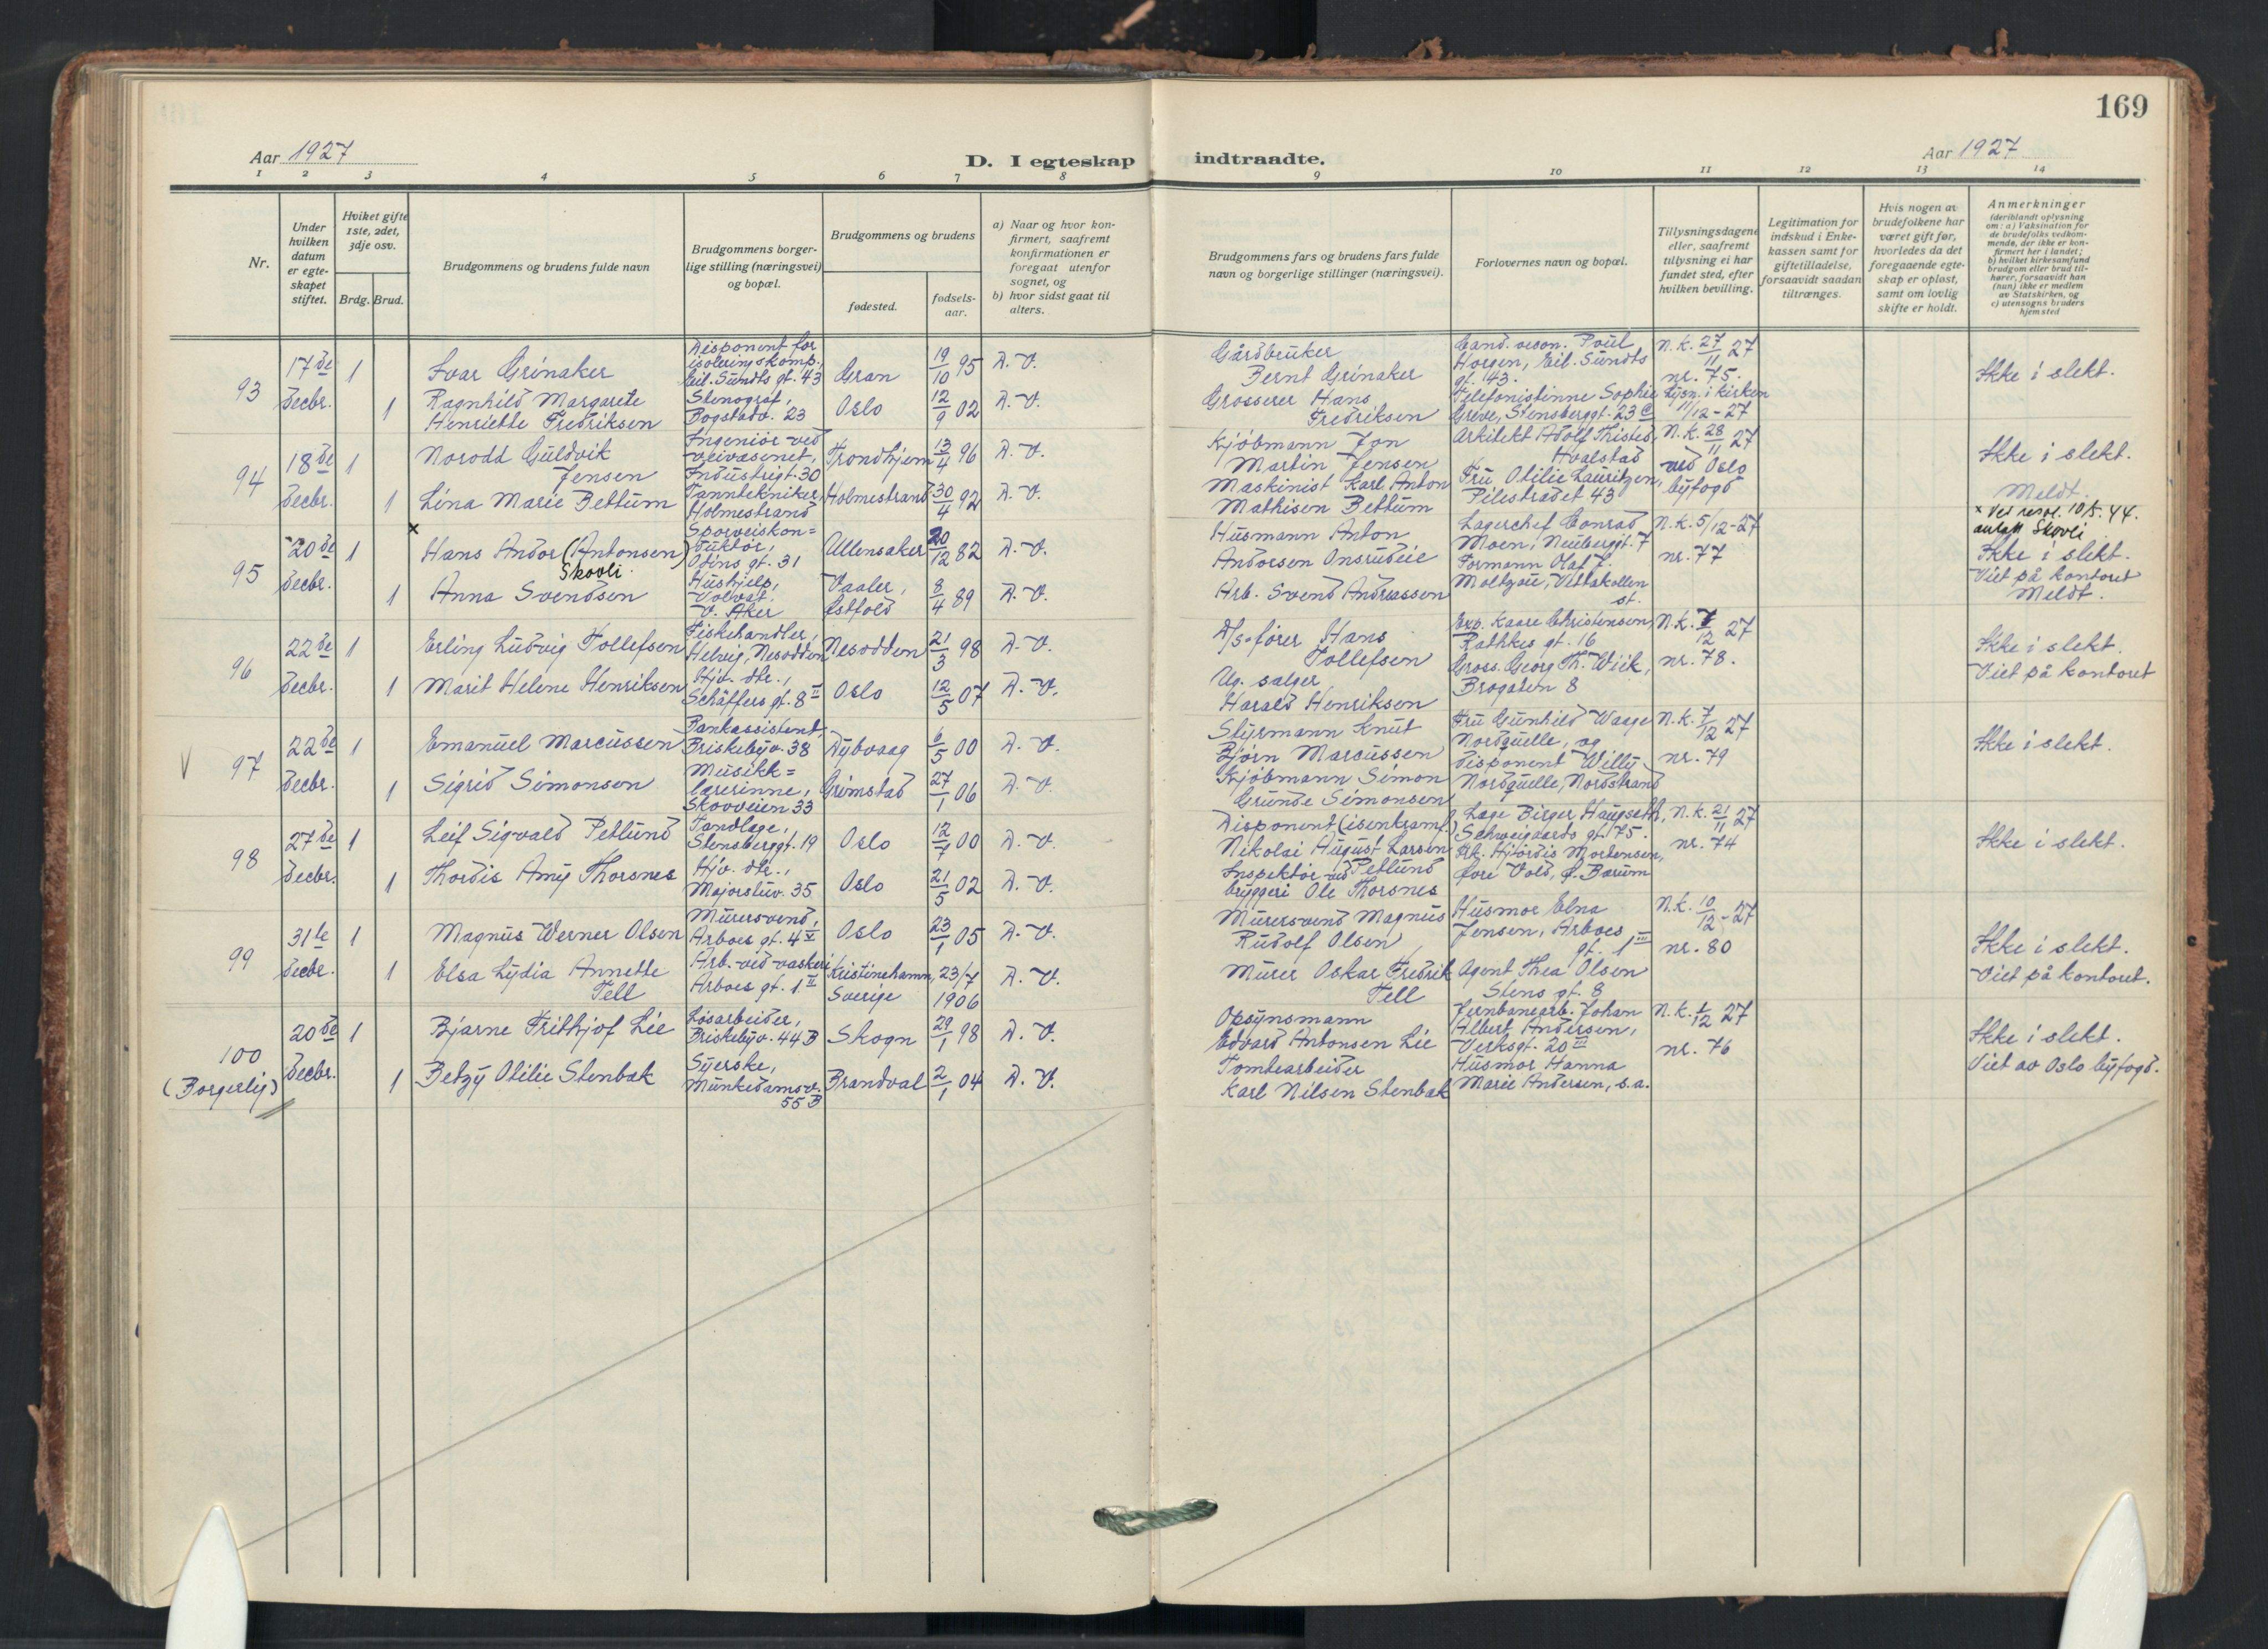 169
Aar 1927
D. I egteskap indtraadte.
Aar 1927
1 2 3 4 5 6 7 8 9 10 11 12 13 14
Nr.
Under hvilken datum er egteskapet stiftet.
Hvilket gifte 1ste, 2det, 3dje osv.
Brdg. Brud.
Brudgommens og brudens fulde navn
Brudgommens borgerlige stilling (næringsvei) og bopæl.
Brudgommens og brudens
fødested.
fødselsaar.
a) Naar og hvor konfirmert, saafremt konfirmationen er foregaat utenfor sognet, og
b) hvor sidst gaat til alters.
Brudgommens fars og brudens fars fulde navn og borgerlige stillinger (næringsvei).
Forlovernes navn og bopæl.
Tillysningsdagene eller, saafremt tillysning ei har fundet sted, efter hvilken bevilling.
Legitimation for indskud i Enkekassen samt for giftetilladelse, forsaavidt saadan tiltrænges.
Hvis nogen av brudefolkene har været gift før, hvorledes da det foregaaende egteskap er opløst, samt om lovlig skifte er holdt.
Anmerkninger
(deriblandt oplysning om: a) Vaksination for de brudefolks vedkommende, der ikke er konfirmert her i landet; b) hvilket kirkesamfund brudgom eller brud tilhører, forsaavidt han (hun) ikke er medlem av Statskirken, og c) utensogns bruders hjemsted
93 17de Decbr. 1 Ivar Grinaker
Disponent for isoleringskomp. Eil. Sundts gt. 43 Gran 19/10 95 D. V.
Gårdbruker Bernt Grinaker
Cand. oecon. Poul Horgen, Eil. Sundts gt. 43.
N.k. 27/11 27 nr. 75.
Ikke i slekt.
1 Ragnhild Margarete Henriette Fredriksen
Stenograf, Bogstadv. 23 Oslo 12/9 02 D. V.
Grosserer Hans Fredriksen
Telefonistinne Sophie Greve, Stensberggt. 23 C
Lysn. i kirken 11/12-27
94 18de Decbr. 1 Norodd Guldvik Jensen
Ingeniør ved veivæsenet, Industrigt. 30 Trondhjem 13/4 96 D. V.
Kjøbmann Jon Martin Jensen
Arkitekt Adolf Thisted, Hvalstad
N.k. 28/11 27 ved Oslo byfogd
Ikke i slekt.
1 Lina Marie Bettum
Tanntekniker, Holmestrand Holmestrand 30/4 92 D. V.
Maskinist Karl Anton Mathisen Bettum
Fru Otilie Lauritzen, Pilestrædet 43
Meldt.
95 20de Decbr. 1 × Hans Andor (Antonsen) Skovli.
Sporveiskonduktør, Odins gt. 31 Ullensaker 20/12 82 D. V.
Husmann Anton Andorsen Onsrudeie
Lagerchef Conrad Moen, Neuberggt. 7
N.k. 5/12-27 nr. 77
× Ved resol. 10/5. 44. antatt Skovli
Ikke i slekt.
Viet på kontoret
Meldt.
1 Anna Svendsen
Hushjelp, Volvat, V. Aker Vaaler, Østfold 8/4 89 D. V.
Arb. Svend Andreassen
Formann Olaf J. Moltzau, Vettakollen st.
96 22de Decbr. 1 Erling Ludvig Tollefsen
Fiskehandler, Helvig, Nesodden Nesodden 21/3 98 D. V.
D/s-fører Hans Tollefsen
Exp. Kaare Christensen, Rathkes gt. 16
N.k. 7/12 27 nr. 78.
Ikke i slekt.
Viet på kontoret
1 Marit Helene Henriksen
Hjv. dtr., Schäffers gt. 8 II Oslo 12/5 07 D. V.
Ug. sælger Harald Henriksen
Gross. Georg Th. Wiik, Brogaten 8
V 97 22de Decbr. 1 Emanuel Marcussen
Bankassistent, Briskebyv. 38 Dybvaag 6/5 00 D. V.
Styrmann Knut Bjørn Marcussen
Fru Gunhild Waage Nordquelle, og
N.k. 7/12 27 nr. 79
Ikke i slekt.
1 Sigrid Simonsen
Musikklærerinne, Skovveien 33 Grimstad 27/1 06 D. V.
Kjøbmann Simon Grunde Simonsen
disponent Willy Nordquelle, Nordstrand
98 27de Decbr. 1 Leif Sigvald Petlund
Tandlæge, Stensberggt. 19 Oslo 12/7 00 D. V.
Disponent (isenkramf.) Nikolai August Larsen Petlund
Læge Birger Haugseth, Schweigaards gt. 75.
N.k. 21/11 27 nr. 74
Ikke i slekt.
1 Thordis Amy Thorsnes
Hjv. dtr., Majorstuv. 35 Oslo 21/5 02 D. V.
Inspektør ved bryggeri Ole Thorsnes
Frk. Hjørdis Mortensen, Øvre Vold, Ø. Bærum
99 31te Decbr. 1 Magnus Werner Olsen
Murersvend, Arboes gt. 4 V Oslo 23/1 05 D. V.
Murersvend Magnus Rudolf Olsen
Husmor Elna Jensen, Arboes gt. 1 III
N.k. 10/12-27 nr. 80
Ikke i slekt.
Viet på kontoret.
1 Elsa Lydia Annette Tell
Arb. ved vaskeri Arboes gt. 1 II Kristinehamn, Sverige 23/7 1906 D. V.
Murer Oskar Fredrik Tell
Agent Thea Olsen Stens gt. 8
100 (Borgerlig) 20de Decbr. 1 Bjarne Frithjof Lie
Løsarbeider, Briskebyv. 44 B Skogn 29/1 98 D. V.
Opsynsmann Edvard Antonsen Lie
Jernbanearb. Johan Albert Andersen, Verksgt. 20 III
N.k. 1/12 27 nr. 76
Ikke i slekt.
Viet av Oslo byfogd.
1 Betzy Otilie Stenbæk
Syerske, Munkedamsv. 55 B Brandval 2/1 04 D. V.
Tomtearbeider Karl Nilsen Stenbæk
Husmor Hanna Marie Andersen, s.a.